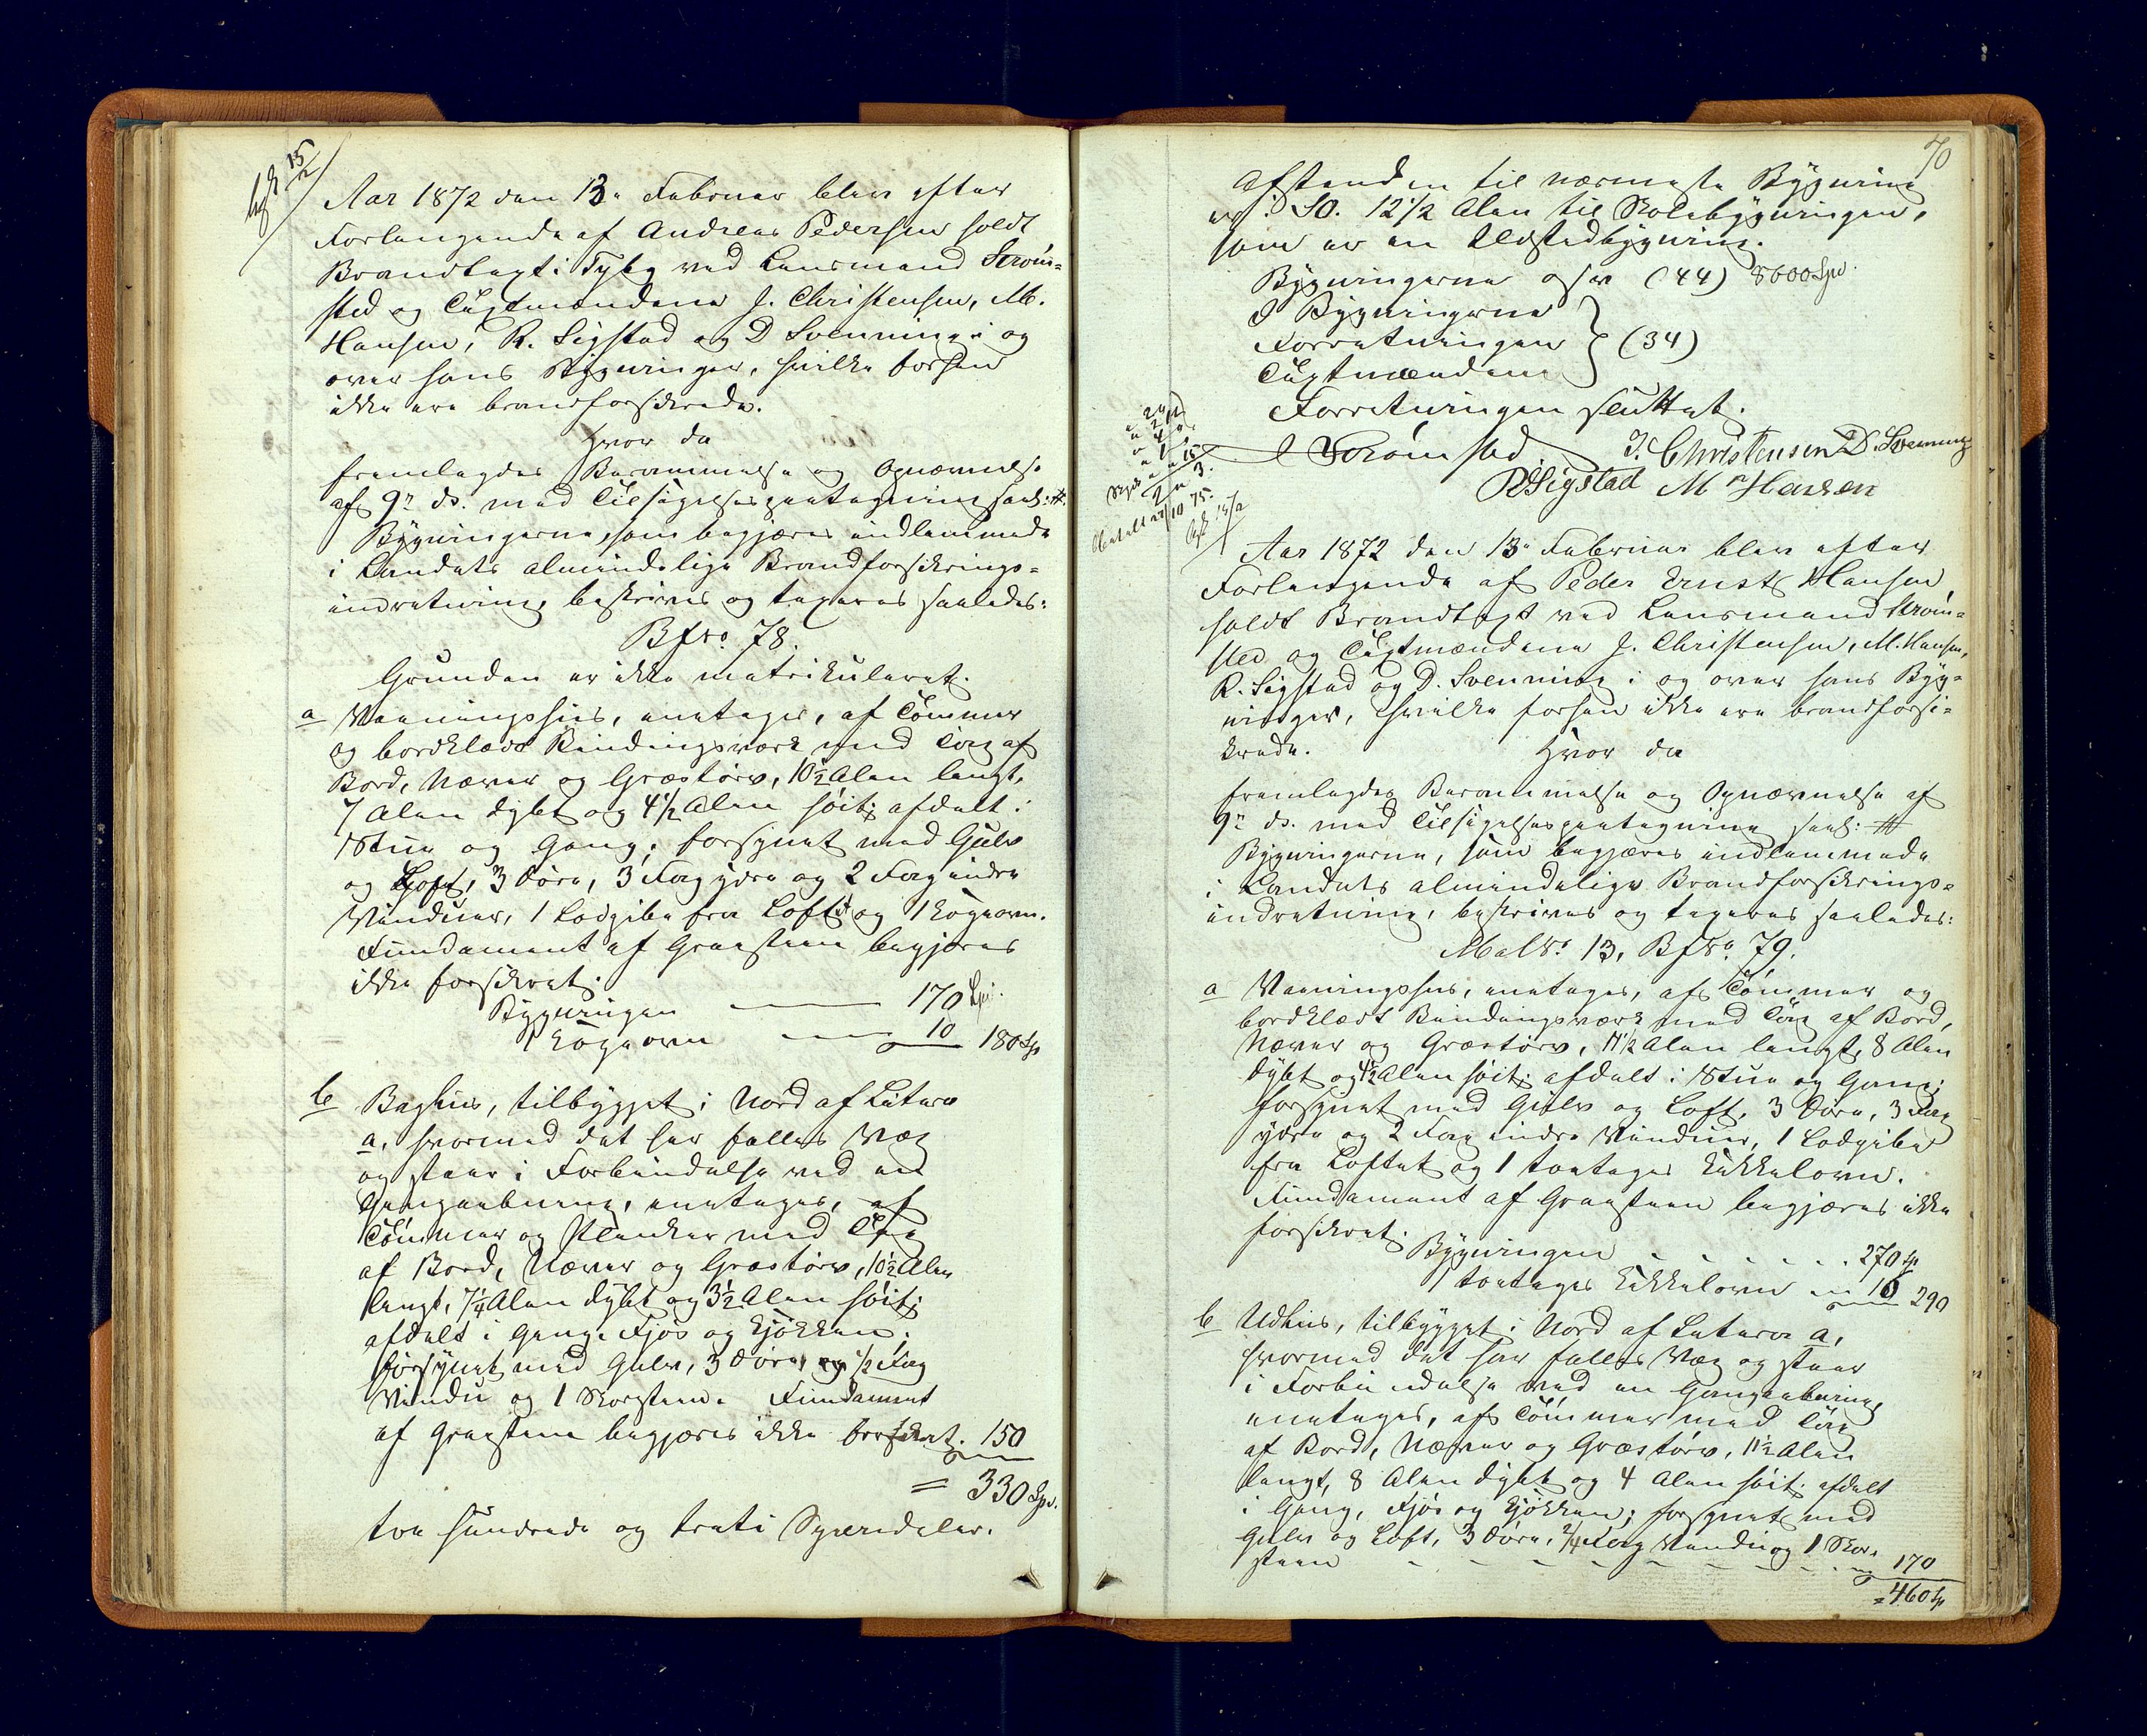 13/2
Aar 1872 den 13. Februar blev efter
Forlangende af Andreas Pedersen holdt
Brandtaxt i Tybg ved Lensmand Strøm-
sted og Taxtmændene J. Christensen, M.
Hansen, R. Sigstad og D Svenning i og
over hans Bygninger, hvilke forhen
ikke ere brandforsikrede.
Hvor da
fremlagdes Berammelse og Opnævnelse
af 9n ds. med Tilsigelsespaategning saal: #.
Bygningerne, som begjæres indlemmede
i Landets almindelige Brandforsikrings-
indretning, beskrives og taxeres saaledes:
BfNo. 78.
Grunden er ikke matrikuleret.
a Vaaningshus, enetages, af Tømmer
og bordklædt Bindingsværk med Tag af
Bord, Næver og Græstørv, 10½ Alen langt,
7 Alen dybt og 4½ Alen høit; afdelt i
Stue og Gang; forsynet med Gulv
og Loft, 3 Døre, 3 Fag ydre og 2 Fag indre
Vinduer, 1 Lodpibe fra Loftet og 1 Kogeovn.
Fundament af Graasteen begjæres
ikke forsikret.
Bygningen — 170 Spd.
1 Kogeovn — 10 180 Sp
b Baghus, tilbygget i Nord af Litera
a, hvormed det har fælles Væg
og staar i Forbindelse ved en
Gangaabning, enetages, af
Tømmer og Planker med Tag
af Bord, Næver og Græstørv, 10½ Alen
langt, 7¼ Alen dybt og 3½ Alen høit;
afdelt i Gang, Fjøs og Kjøkken;
forsynet med Gulv, 3 Døre, og ½ Fag
Vindu og 1 Skorsteen. Fundament
af Graasteen begjæres ikke forsikret. 150
= 330 Spd.
tre hundrede og treti Speciedaler.
70
Afstanden til nærmeste Bygning
er i SO. 12½ Alen til Skolebygningen,
som er en Ildstedbygning.
Bygningerne osv (44) 8600 Spd.
I Bygningerne
Forretningen } (34)
Taxtmændene
Forretningen sluttet.
Strømsted J. Christensen D. Svenning
R Sigstad M Hansen
Betalt 27/10 75.
Aar 1872 den 13. Februar blev efter
Forlangende af Peder Ernst Hansen
holdt Brandtaxt ved Lensmand Strøm-
sted og Taxtmændene J. Christensen, M. Hansen,
R. Sigstad og D. Svenning i og over hans Byg-
ninger, hvilke forhen ikke ere brandforsi-
krede. Hvor da
fremlagdes Berammelse og Opnævnelse af
9n ds. med Tilsigelsespaategning saal: #
Bygningerne, som begjæres indlemmede
i Landets almindelige Brandforsikrings-
indretning, beskrives og taxeres saaledes:
MatNo. 13, BfNo. 79.
a Vaaningshus, enetages, af Tømmer og
bordklædt Bindingsværk med Tag af Bord,
Næver og Græstørv, 11½ Alen langt, 8 Alen
dybt og 4½ Alen høit; afdelt i Stue og Gang;
forsynet med Gulv og Loft, 3 Døre, 3 Fag
ydre og 2 Fag indre Vinduer, 1 Lodpibe
fra Loftet og 1 toetages Kakkelovn.
Fundament af Graasteen begjæres ikke
forsikret. Bygningen . . . . . 270 Sp
1 toetages Kakkelovn 290
b Udhus, tilbygget i Nord af Litera a,
hvormed det har fælles Væg og staar
i Forbindelse ved en Gangaabning,
enetages, af Tømmer med Tag
af Bord, Næver og Græstørv, 11½ Alen
langt, 8 Alen dybt og 4 Alen høit; afdelt
i Gang, Fjøs og Kjøkken; forsynet med
Gulv og Loft, 3 Døre, 2/4 Fag Vindu og 1 Skor-
steen - - - - - - - 170
= 460 Sp